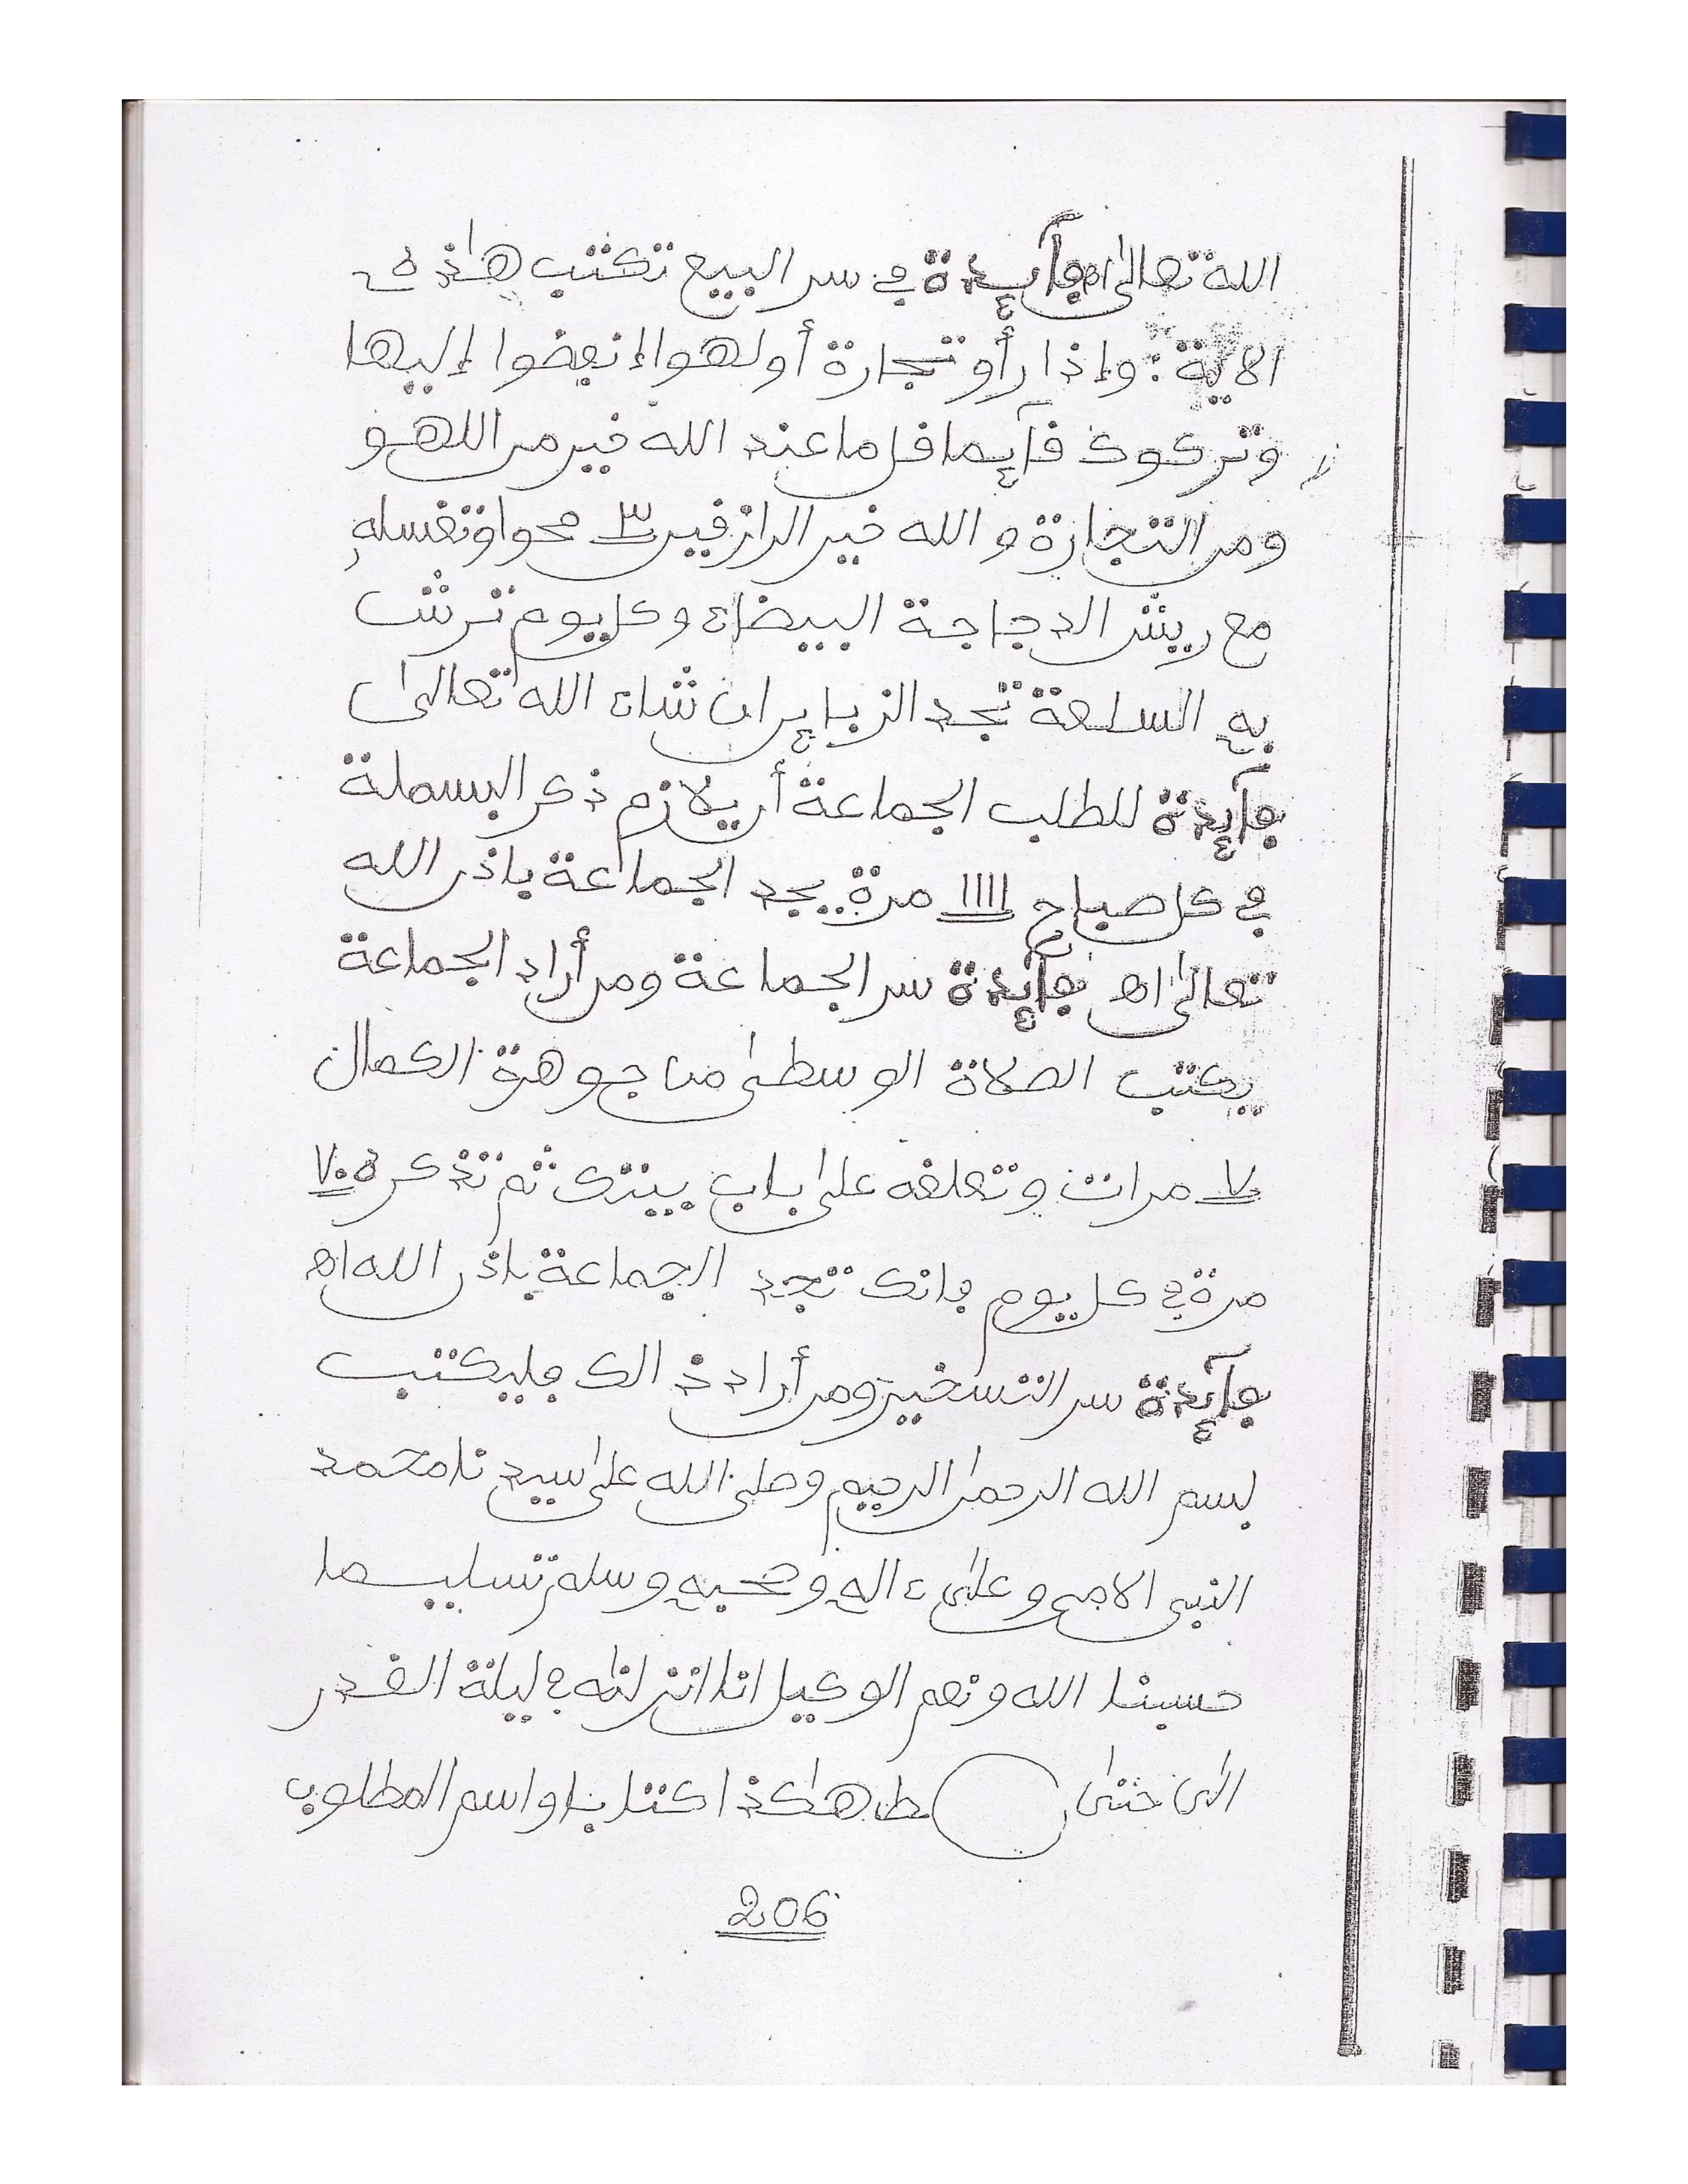 الله تعالى اه فآئدة في سر البيع تكتب هاذه
الاية : وإذا رأو تجارة أو لهوا إنفضوا إليها
وتركوك فآيما فل ما عند الله خير من اللهو
ومن التجارة و الله خير الرازفين ٣ محوا وتغسله
مع ريش الدجاجة البيضاء وكل يوم ترش
به السلعة تجد الزبإير ان شاء الله تعالى
فآئدة للطلب الجماعة أن يلازم ذكر البسملة
في كل صباح ١١١١ مرة يجد الجماعة باذن الله
تعالى اه فآئدة سر الجماعة ومن أراد الجماعة
يكتب الصلاة الوسطى من جوهة الكمال
٧ مرات وتعلفه على باب بيتك ثم تذكره ٧٠
مرة في كل يوم فانك تجد الجماعة باذن الله اه
فآئدة سر التسخير ومن أراد ذالك فليكتب
بسم الله الرحمن الرحيم وصلى الله على سيدنا محمد
النبي الامي وعلى ءاله وصحبه وسلم تسليما
حسبنا الله ونعم الوكيل انا انزلنه في ليلة الفدر
الى حتى طه هاكذا كتابا واسم المطلوب
206